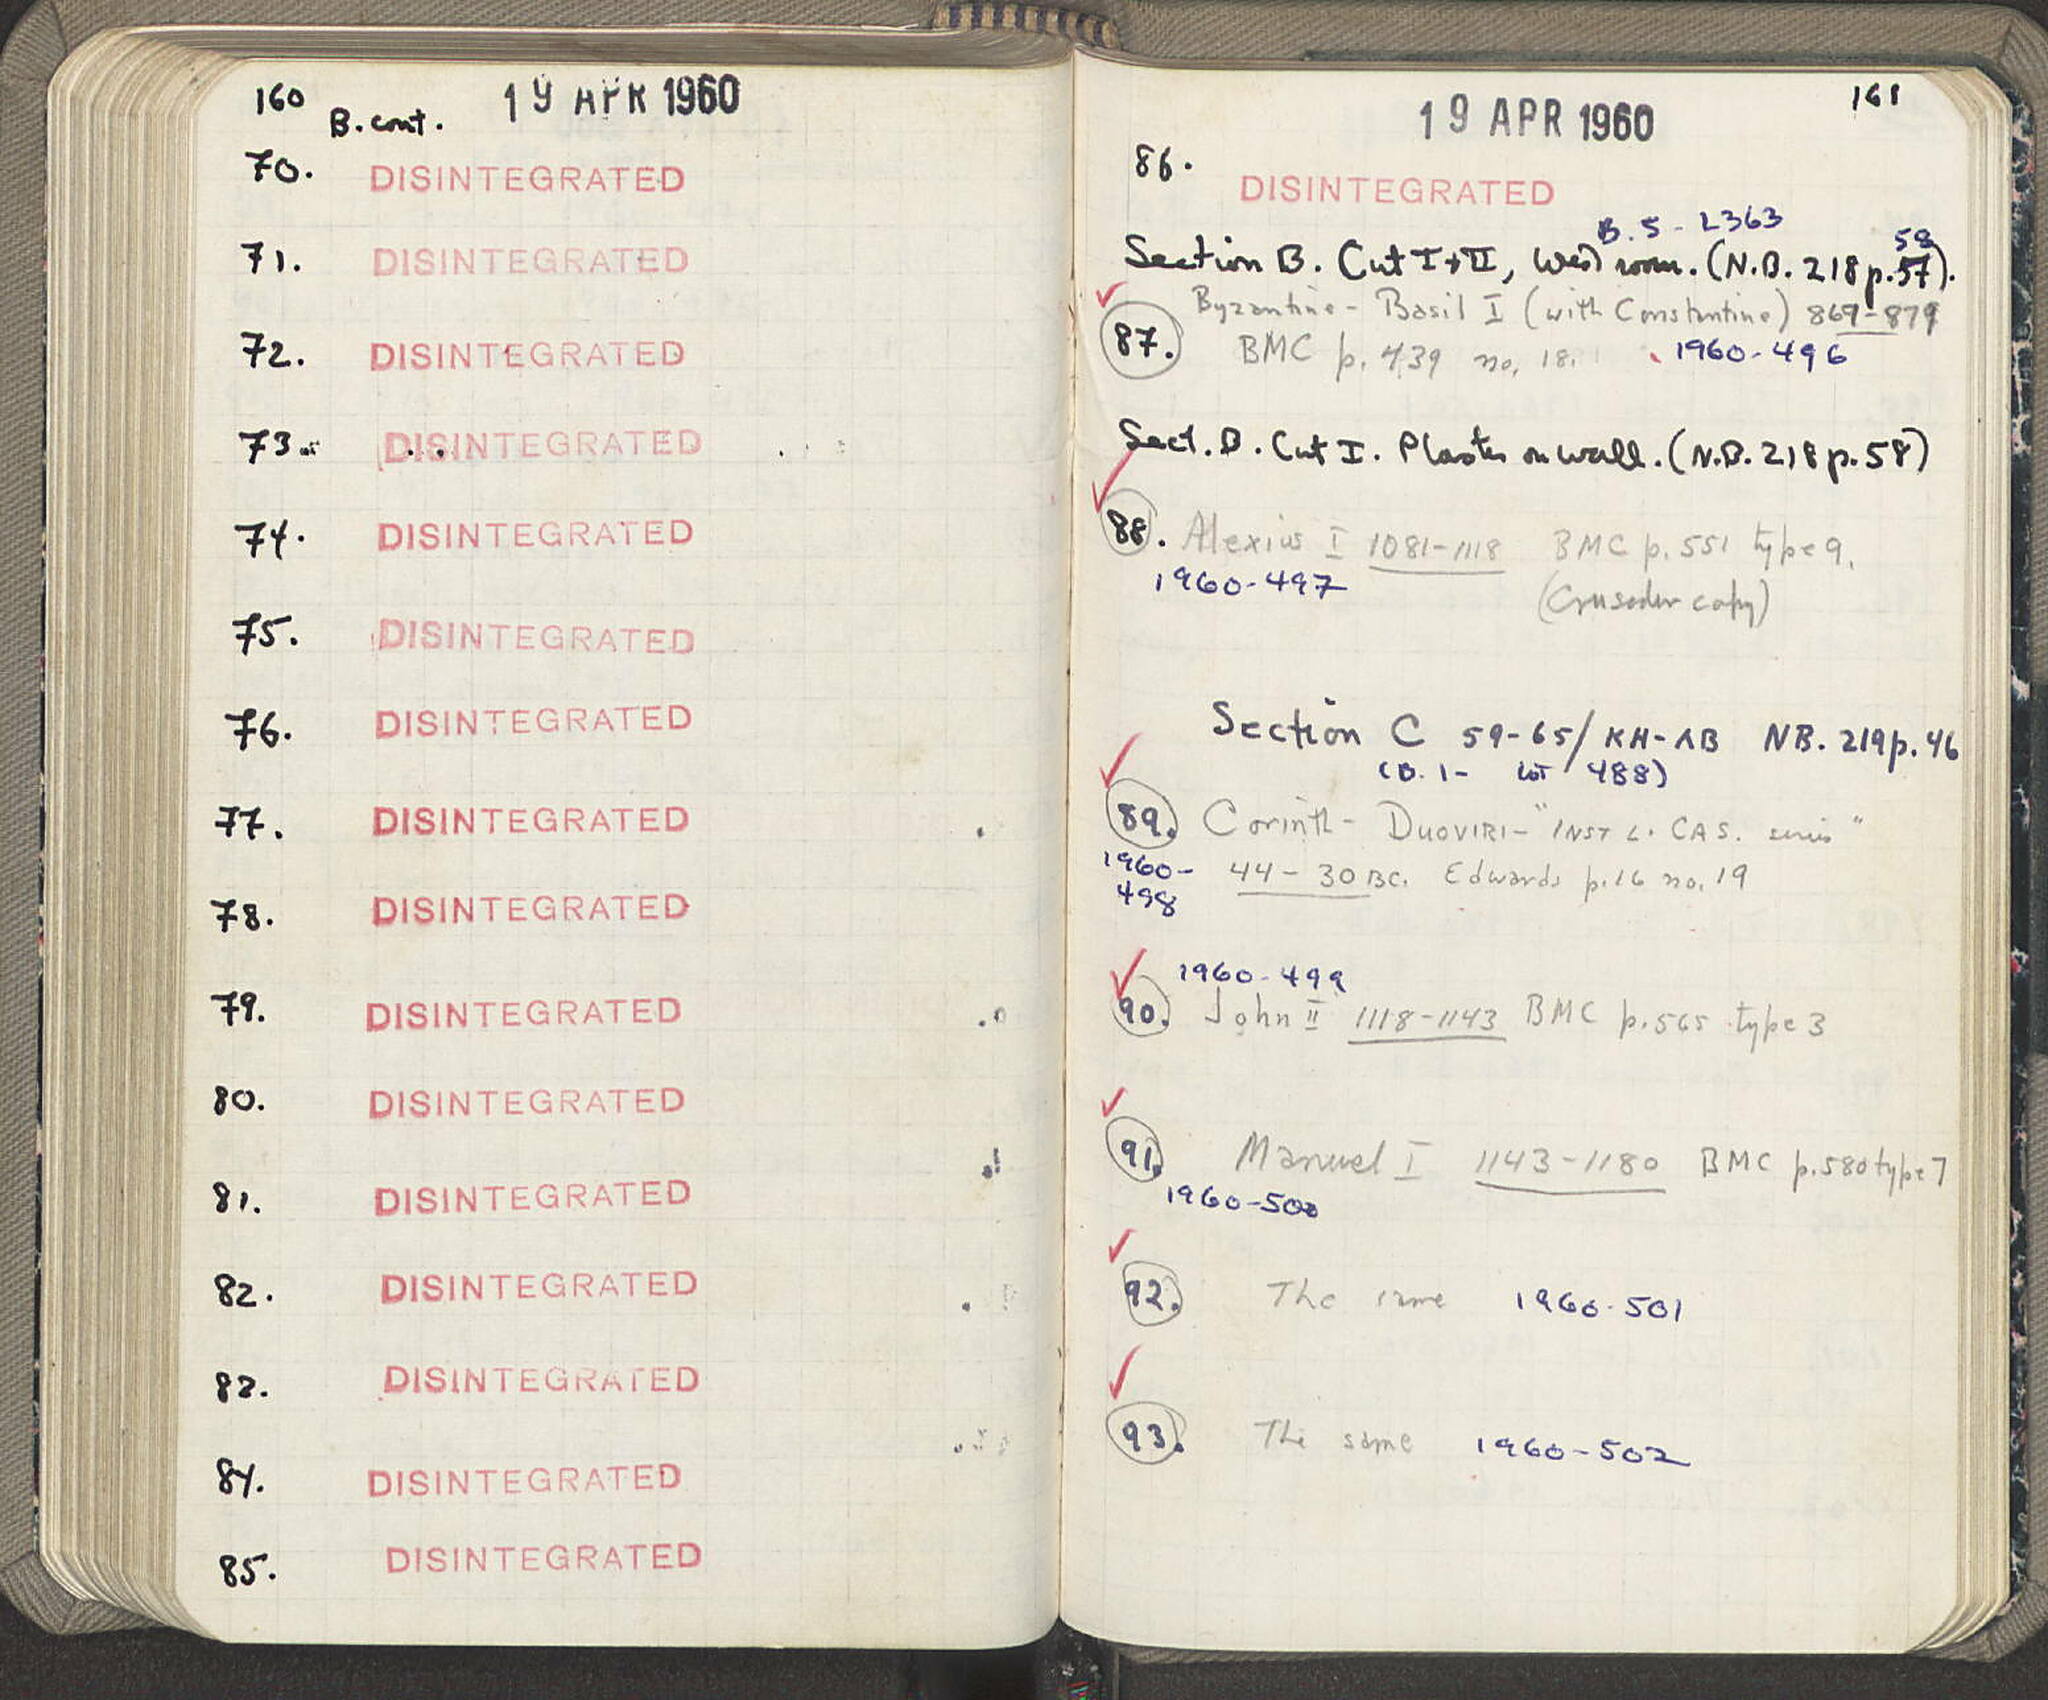 160 B. cont. 19 APR 1960
70. DISINTEGRATED
71. DISINTEGRATED
72. DISINTEGRATED
73. DISINTEGRATED
74. DISINTEGRATED
75. DISINTEGRATED
76. DISINTEGRATED
77. DISINTEGRATED
78. DISINTEGRATED
79. DISINTEGRATED
80. DISINTEGRATED
81. DISINTEGRATED
82. DISINTEGRATED
83. DISINTEGRATED
84. DISINTEGRATED
85. DISINTEGRATED
19 APR 1960 161
86. DISINTEGRATED
B.5 - L363
58
Section B. Cut I+II, West room. (N.B. 218 p. 57).
Byzantine - Basil I (with Constantine) 869-879
87. BMC p. 439 no. 18. 1960-496
Sect. B. Cut I. Plaster on wall. (N.B. 218 p. 58)
88. Alexius I 1081-1118 BMC p. 551 type 9.
1960-497 (Crusader copy)
Section C 59-65/KH-ΛB NB. 219 p. 46
(B. 1- Lot 488)
89. Corinth - DUOVIRI - "INST L. CAS. series"
1960- 44 - 30 BC. Edwards p. 16 no. 19
498
1960-499
90. John II 1118-1143 BMC p. 565 type 3
91. Manuel I 1143-1180 BMC p. 580 type 7
1960-500
92. The same 1960-501
93. The same 1960-502